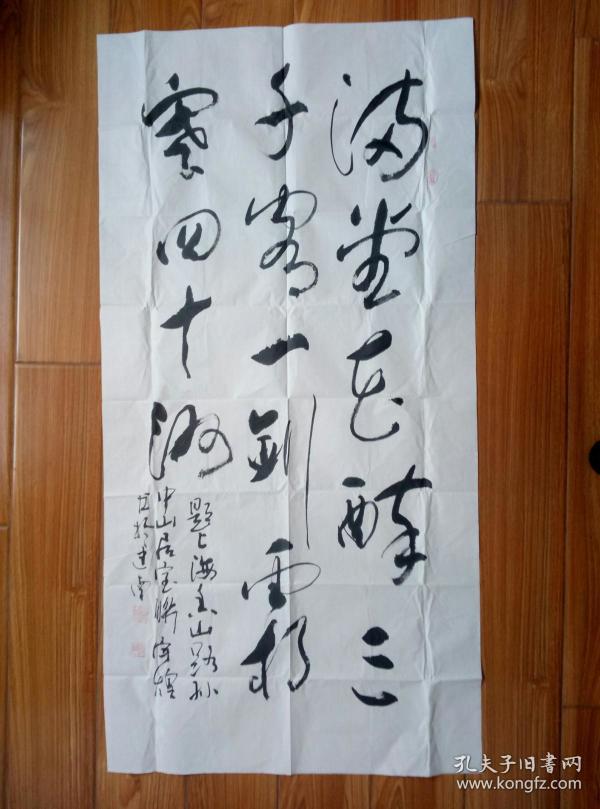 满堂花醉三
千客一剑霜
寒四十洲
题上海香山路孙
中山居室联
孔夫子旧書网
www.kongfz.com